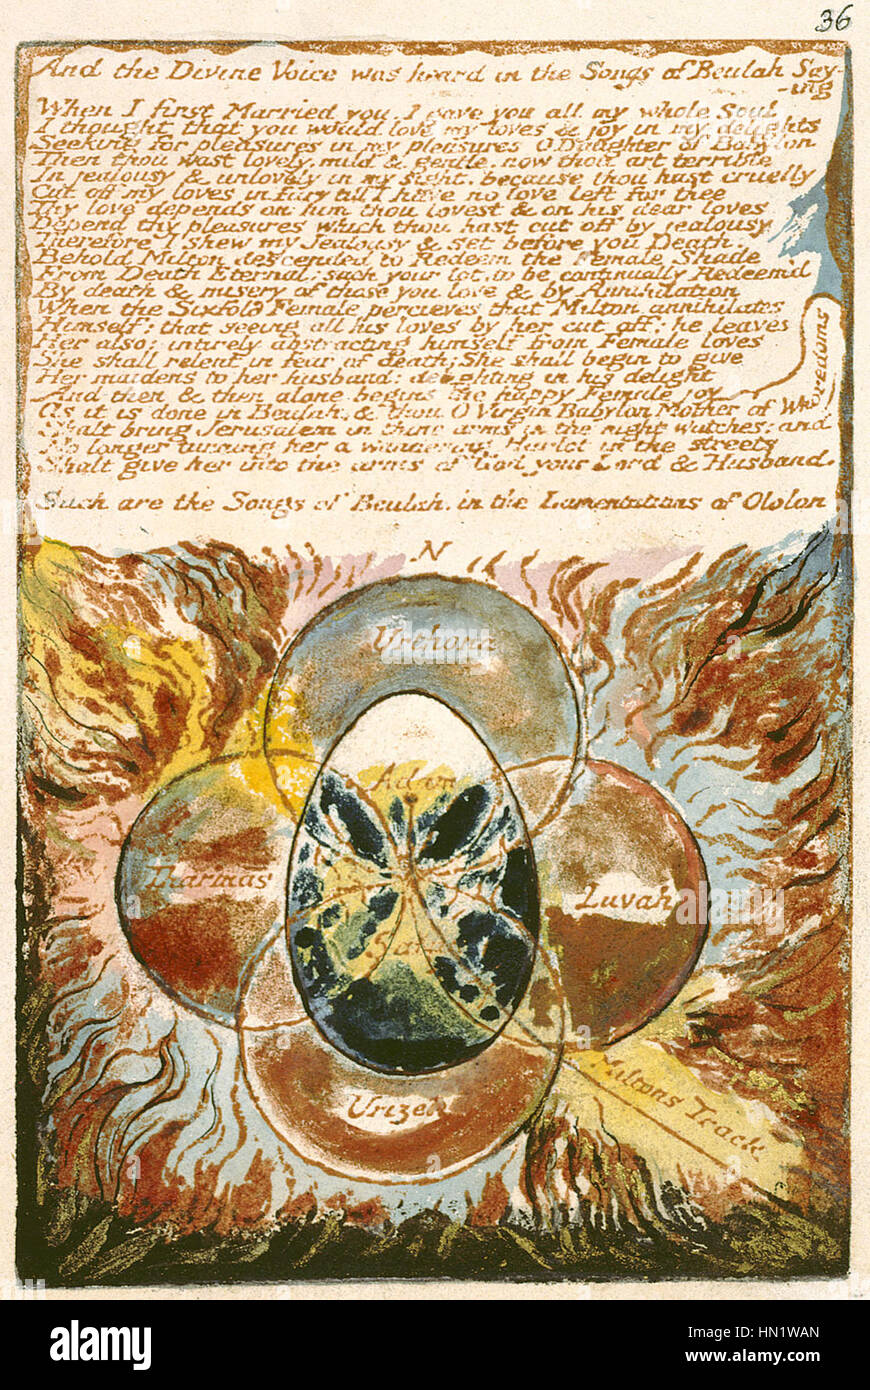 36
And the Divine Voice was heard in the Songs of Beulah Say-
-ing
When I first Married you, I gave you all my whole Soul
I thought that you would love my loves & joy in my delights
Seeking for pleasures in my pleasures O Daughter of Babylon
Then thou wast lovely, mild & gentle, now thou art terrible
In jealousy & unlovely in my sight, because thou hast cruelly
Cut off my loves in fury till I have no love left for thee
Thy love depends on him thou lovest & on his dear loves
Depend thy pleasures which thou hast cut off by jealousy
Therefore I shew my Jealousy & set before you Death.
Behold Milton descended to Redeem the Female Shade
From Death Eternal; such your lot, to be continually Redeem'd
By death & misery of those you love & by Annihilation
When the Sixfold Female percieves that Milton annihilates
Himself: that seeing all his loves by her cut off: he leaves
Her also: intirely abstracting himself from Female loves
She shall relent in fear of death; She shall begin to give
Her maidens to her husband: delighting in his delight
And then & then alone begins the happy Female joy
As it is done in Beulah, & thou O Virgin Babylon Mother of Whoredoms
Shalt bring Jerusalem in thine arms in the night watches; and
No longer turning her a wandering Harlot in the streets
Shalt give her into the arms of God your Lord & Husband.
Such are the Songs of Beulah in the Lamentations of Ololon
N
Urthona
Adam
Tharmas
Luvah
Satan
Urizen
Miltons Track
alamy stock photo
HN1WAN
www.alamy.com